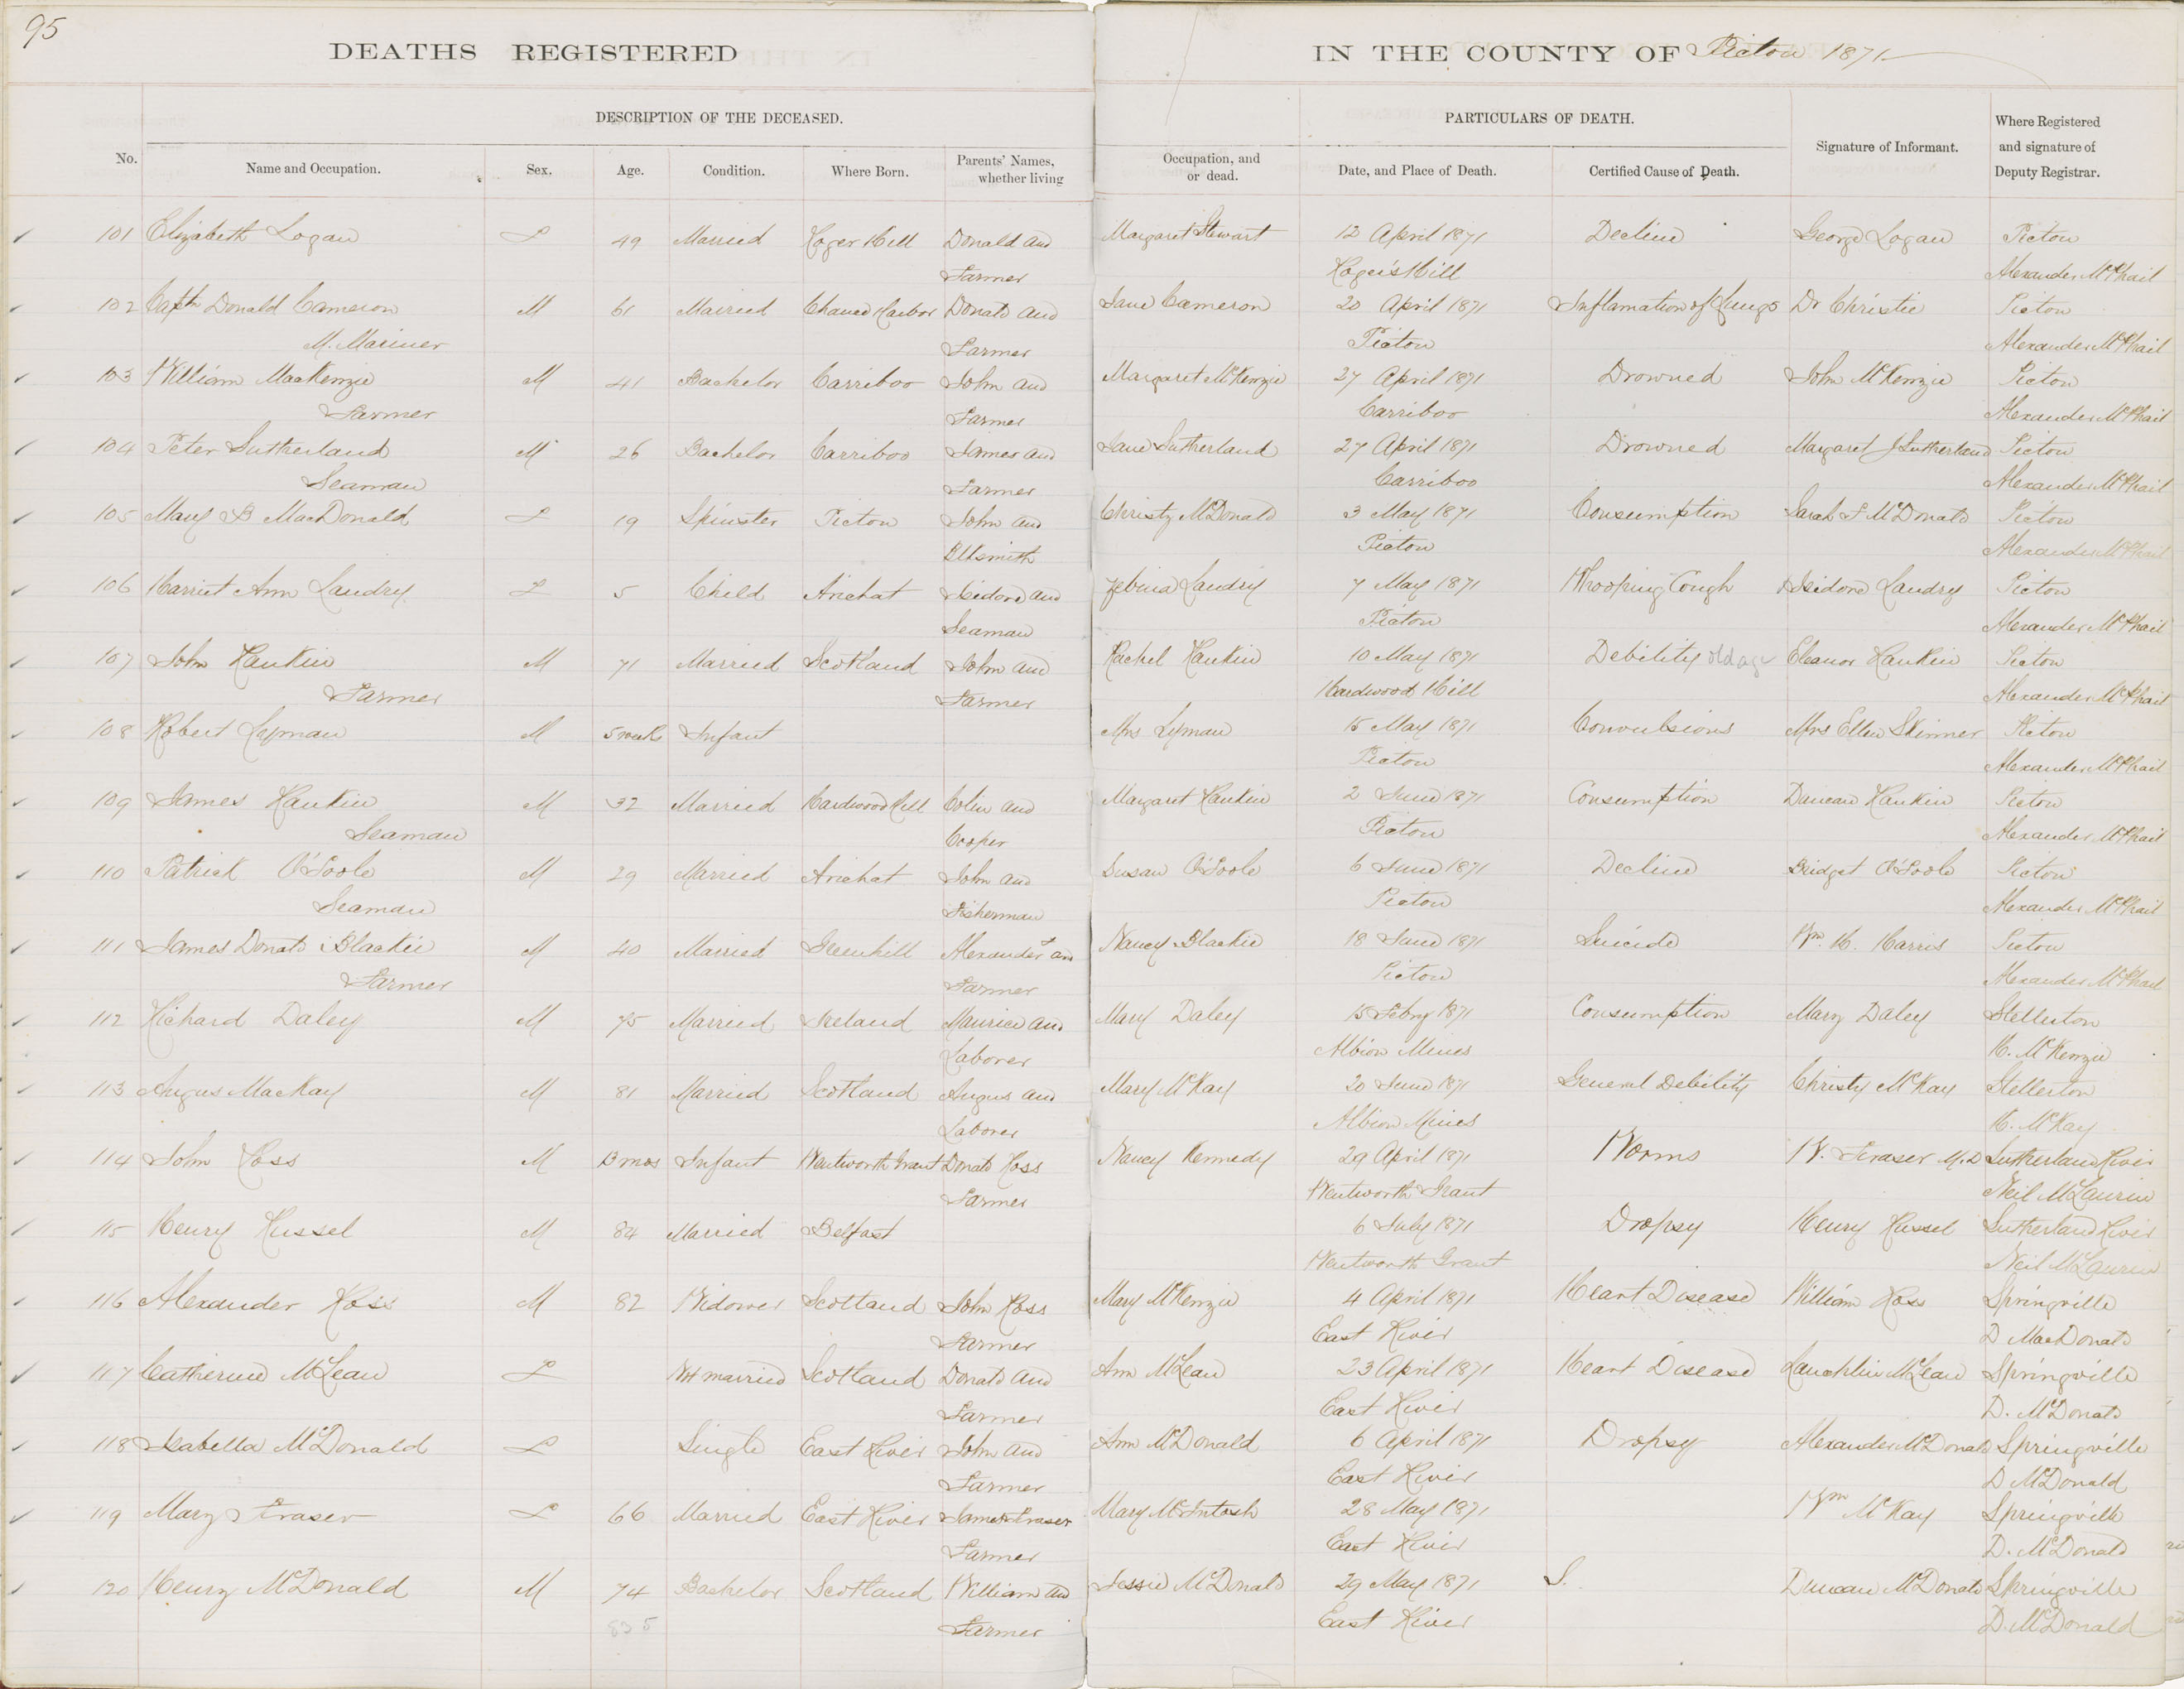 95
DEATHS REGISTERED IN THE COUNTY OF Pictou 1871
DESCRIPTION OF THE DECEASED. PARTICULARS OF DEATH.
No. Name and Occupation. Sex. Age. Condition. Where Born. Parents' Names, whether living Occupation, and or dead. Date, and Place of Death. Certified Cause of Death. Signature of Informant. Where Registered and signature of Deputy Registrar.
101 Elizabeth Logan F 49 Married Roger Hill Donald and Margaret Stewart 12 April 1871 Decline George Logan Pictou
Farmer Roger's Hill Alexander McPhail
102 Capth Donald Cameron M 61 Married Harbor Donald and Jane Cameron 20 April 1871 Inflamation of Lungs Dr Christie Pictou
M. Mariner Farmer Pictou Alexander McPhail
103 William MacKenzie M 41 Bachelor Carriboo John and Margaret McKenzie 27 April 1871 Drowned John McKenzie Pictou
Farmer Farmer Carriboo Alexander McPhail
104 Peter Sutherland M 26 Bachelor Carriboo James and Jane Sutherland 27 April 1871 Drowned Margaret J Sutherland Pictou
Seaman Farmer Carriboo Alexander McPhail
105 Mary B MacDonald F 19 Spinster Pictou John and Christy McDonald 3 May 1871 Consumption Sarah F McDonald Pictou
Blksmith Pictou Alexander McPhail
106 Harriet Ann Landry F 5 Child Arichat Isidore and Landry 7 May 1871 Whooping Cough Isidore Landry Pictou
Seaman Pictou Alexander McPhail
107 John Rankin M 71 Married Scotland John and Rachel Rankin 10 May 1871 Debility old age Eleanor Rankin Pictou
Farmer Farmer Hardwood Hill Alexander McPhail
108 Robert Lyman M 5 week Infant Mrs Lyman 15 May 1871 Convulsions Mrs Ellen Skinner Pictou
Pictou Alexander McPhail
109 James Rankin M 32 Married Hardwood Hill Colin and Margaret Rankin 2 June 1871 Consumption Duncan Rankin Pictou
Seaman Cooper Pictou Alexander McPhail
110 Patrick O'Toole M 29 Married Arichat John and Susan O'Toole 6 June 1871 Decline Bridget O'Toole Pictou
Seaman Fisherman Pictou Alexander McPhail
111 James Donald Blackie M 40 Married Greenhill Alexander and Nancy Blackie 18 June 1871 Suicide Wm H. Harris Pictou
Farmer Farmer Pictou Alexander McPhail
112 Richard Daley M 75 Married Ireland Maurice and Mary Daley 15 Febry 1871 Consumption Mary Daley Stellerton
Laborer Albion Mines H. McKenzie
113 Angus MacKay M 81 Married Scotland Angus and Mary McKay 20 June 1871 General Debility Christy McKay Stellerton
Laborer Albion Mines H. McKay
114 John Ross M 13 mos Infant Wentworth Grant Donald Ross Nancy Kennedy 29 April 1871 Worms W. Fraser M.D Sutherland River
Farmer Wentworth Grant Neil McLaurin
115 Henry Russel M 84 Married Belfast 6 July 1871 Dropsy Henry Russel Sutherland River
Wentworth Grant Neil McLaurin
116 Alexander Ross M 82 Widower Scotland John Ross Mary McKenzie 4 April 1871 Heart Disease William Ross Springville
Farmer East River D MacDonald
117 Catherine McLean F Not married Scotland Donald and Ann McLean 23 April 1871 Heart Disease Lauchlin McLean Springville
Farmer East River D. McDonald
118 Isabella McDonald F Single East River John and Ann McDonald 6 April 1871 Dropsy Alexander McDonald Springville
Farmer East River D McDonald
119 Mary Fraser F 66 Married East River James Fraser Mary McIntosh 28 May 1871 Wm McKay Springville
Farmer East River D. McDonald
120 Henry McDonald M 74 Bachelor Scotland William and Jessie McDonald 29 May 1871 S. Duncan McDonald Springville
835 Farmer East River D. McDonald